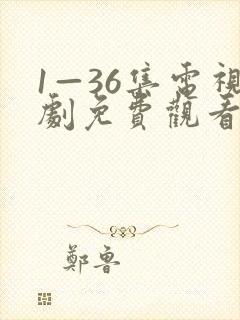 1—36集電視
劇免費觀看
鄭魯